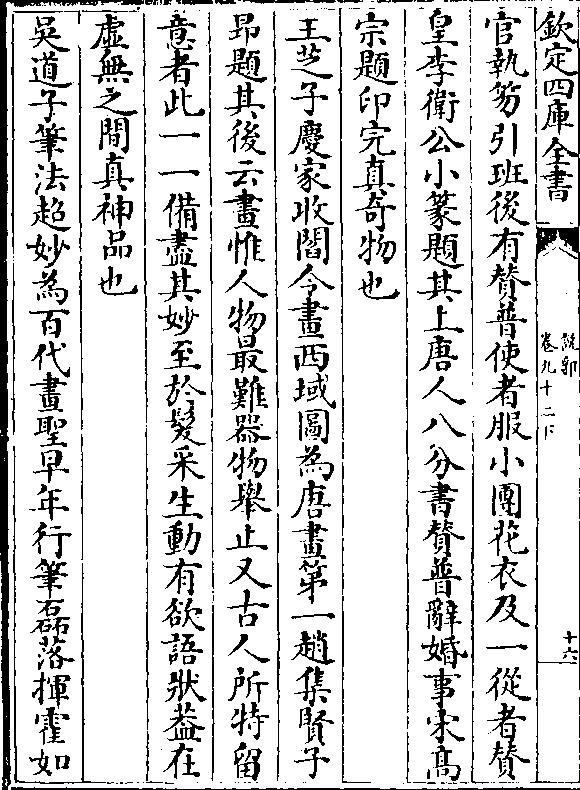 欽定四庫全書
說郛
卷九十二下
十六
官執笏引班後有贊普使者服小團花衣及一從者贊
皇李衛公小篆題其上唐人八分書贊普辭婚事宋高
宗題印完真奇物也
王芝子慶家收閻令畫西域圖為唐畫第一趙集賢子
昂題其後云畫惟人物最難器物舉止又古人所特留
意者此一一備盡其妙至於髮采生動有欲語狀葢在
虛無之間真神品也
吳道子筆法超妙為百代畫聖早年行筆磊落揮霍如